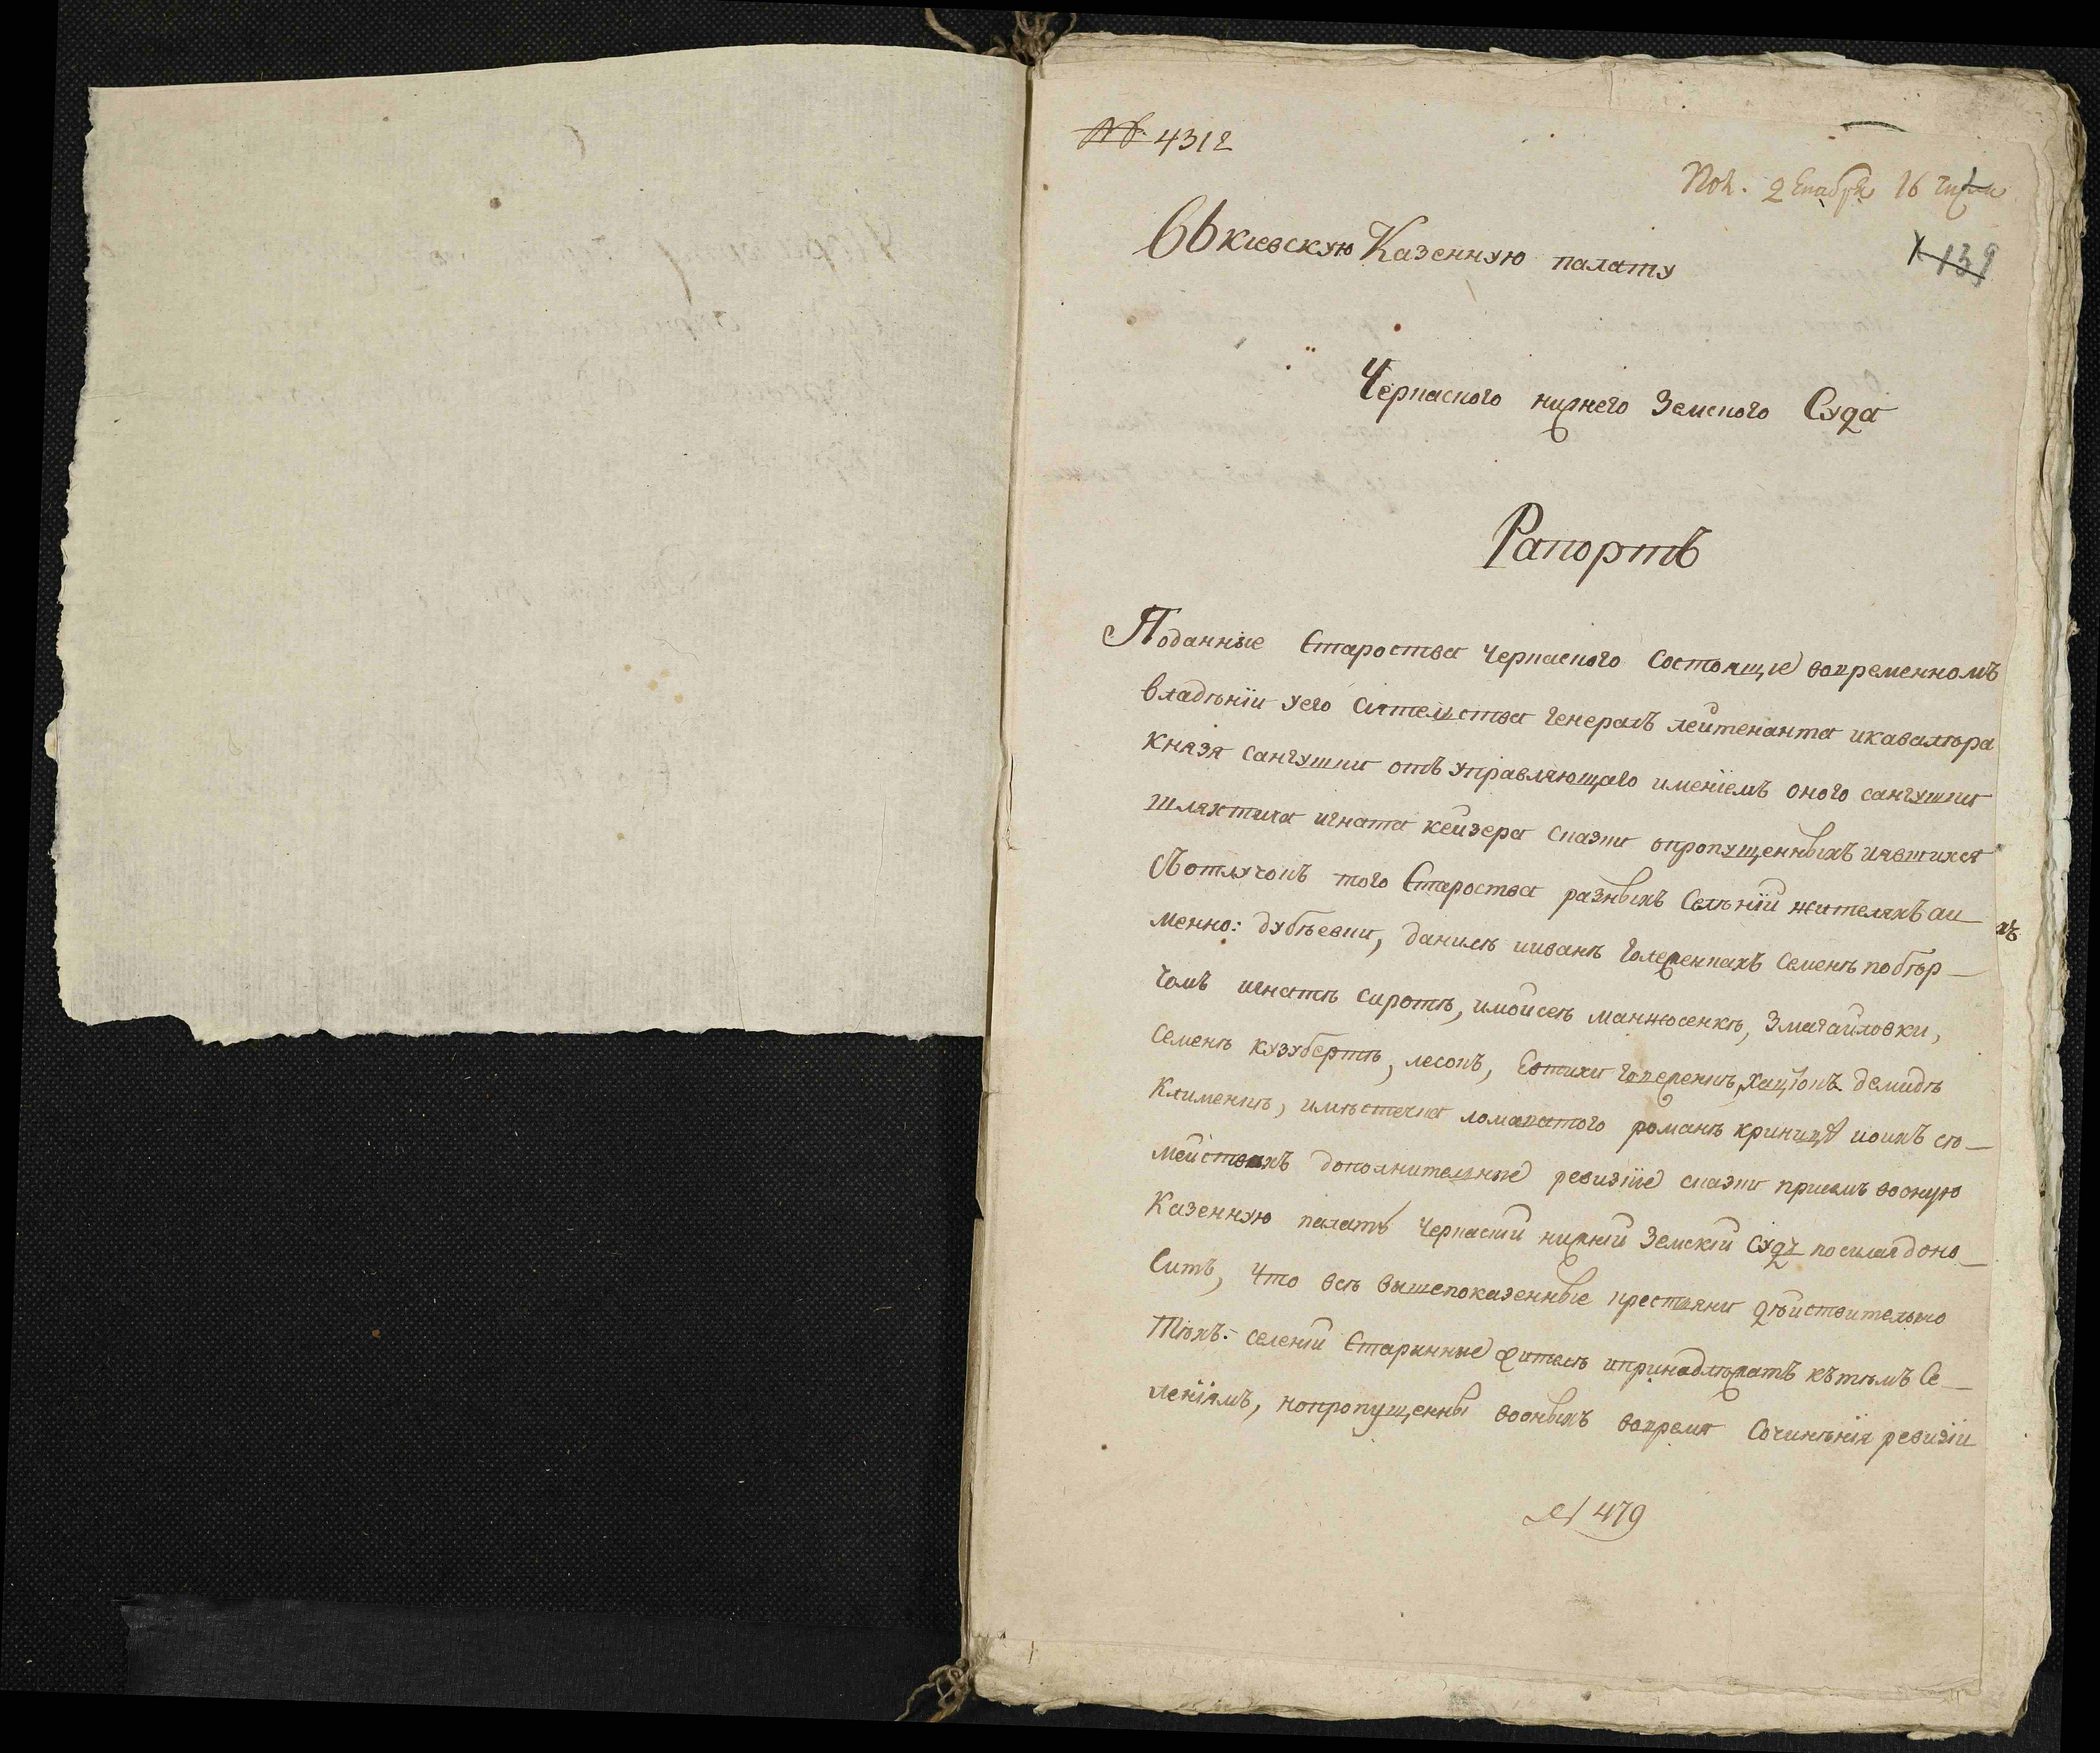 № 4312
Пол. декабря 16 числа
139
Въ киевскую Казенную палату
Черкаского нижнего Земского Суда
Рапортъ
Поданные Староства Черкаского Состоящие вовременномъ
владѣнїи уего Сиятельства генералъ лейтенанта икавалѣра
князя сангушки отъ управляющаго имениемъ оного сангушки
шляхтича игната кейзера сказки опропущенныхъ иявшихся
Съ отлучокъ того Староства разныхъ Селѣнїй жителяхъ аи
менно: дубѣевки, данилѣ ииванѣ Семенѣ побѣр-
хъ
чомъ игнатѣ сиротѣ, имойсеѣ манжосенкѣ, Змагайловки,
Семенѣ кузубертѣ, лесокъ, Евтихи хацкокъ демидѣ
Клименкѣ, имѣстечка ломоватого романѣ криницѣ иоихъ сѣ-
мействахъ дополнительные ревизкїе сказки приемъ вооную
Казенную палатѣ Черкаский нижнїй Земскїй Судъ посилая доно-
Ситъ, что всѣ вышепоказенные крестьяни дѣйствительно
Тѣхъ: селенїй Старинные жителѣ ипринадлѣжатъ кътѣмъ Се-
ленїямъ, нопропущенны воонныхъ вовремя Сочинѣнїя ревизїи
№ 479